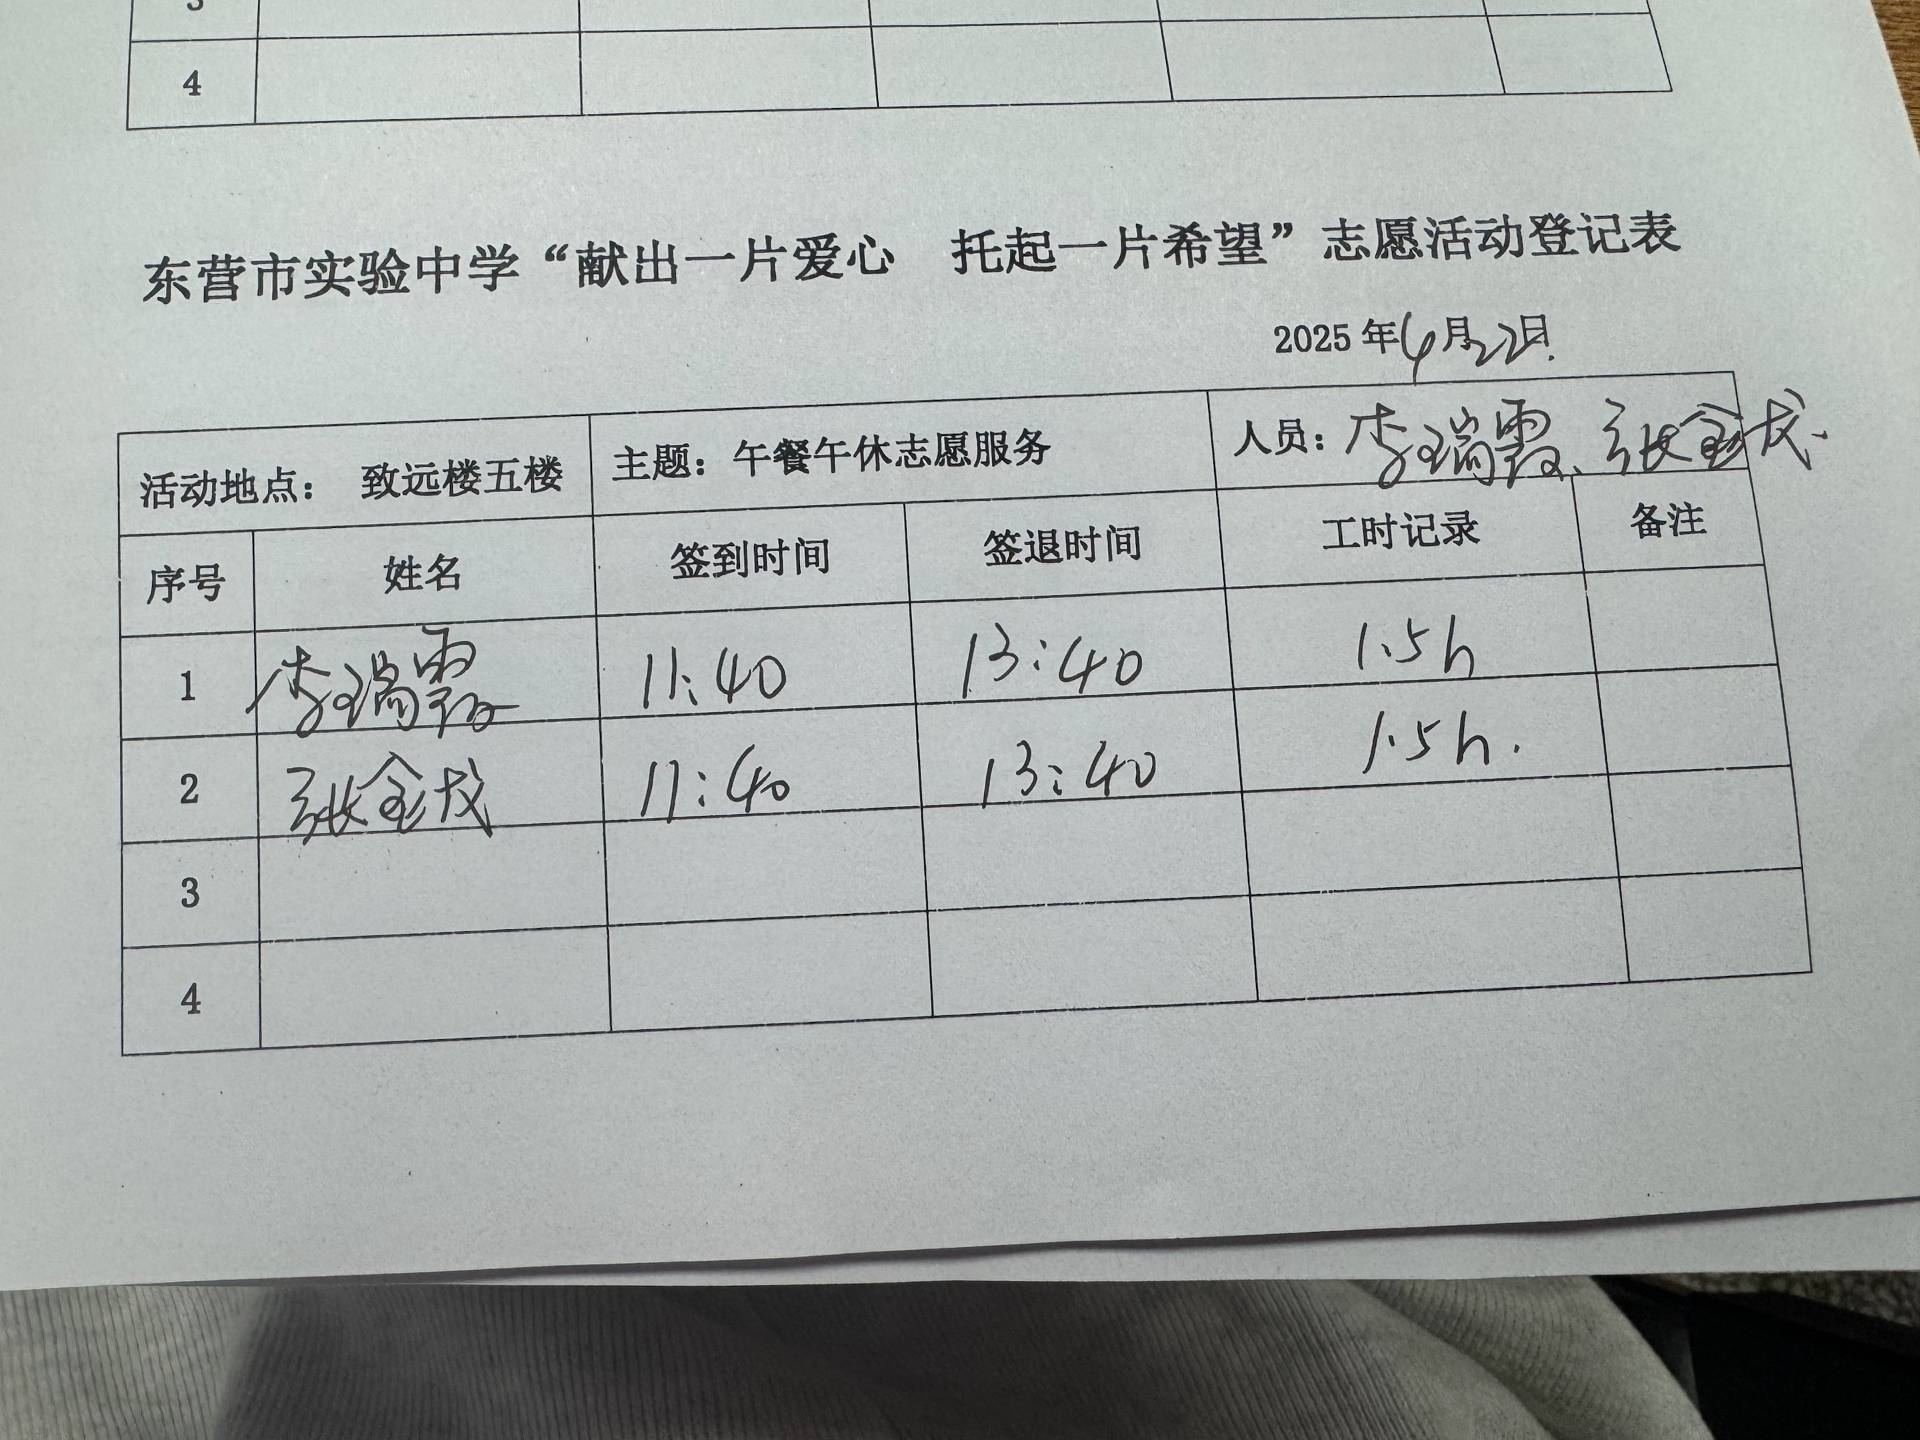 3
4
东营市实验中学“献出一片爱心 托起一片希望”志愿活动登记表
2025年4月22日.
活动地点： 致远楼五楼 主题：午餐午休志愿服务 人员：李瑞霞、张金戈.
序号 姓名 签到时间 签退时间 工时记录 备注
1 李瑞霞 11:40 13:40 1.5h
2 张金戈 11:40 13:40 1.5h.
3
4